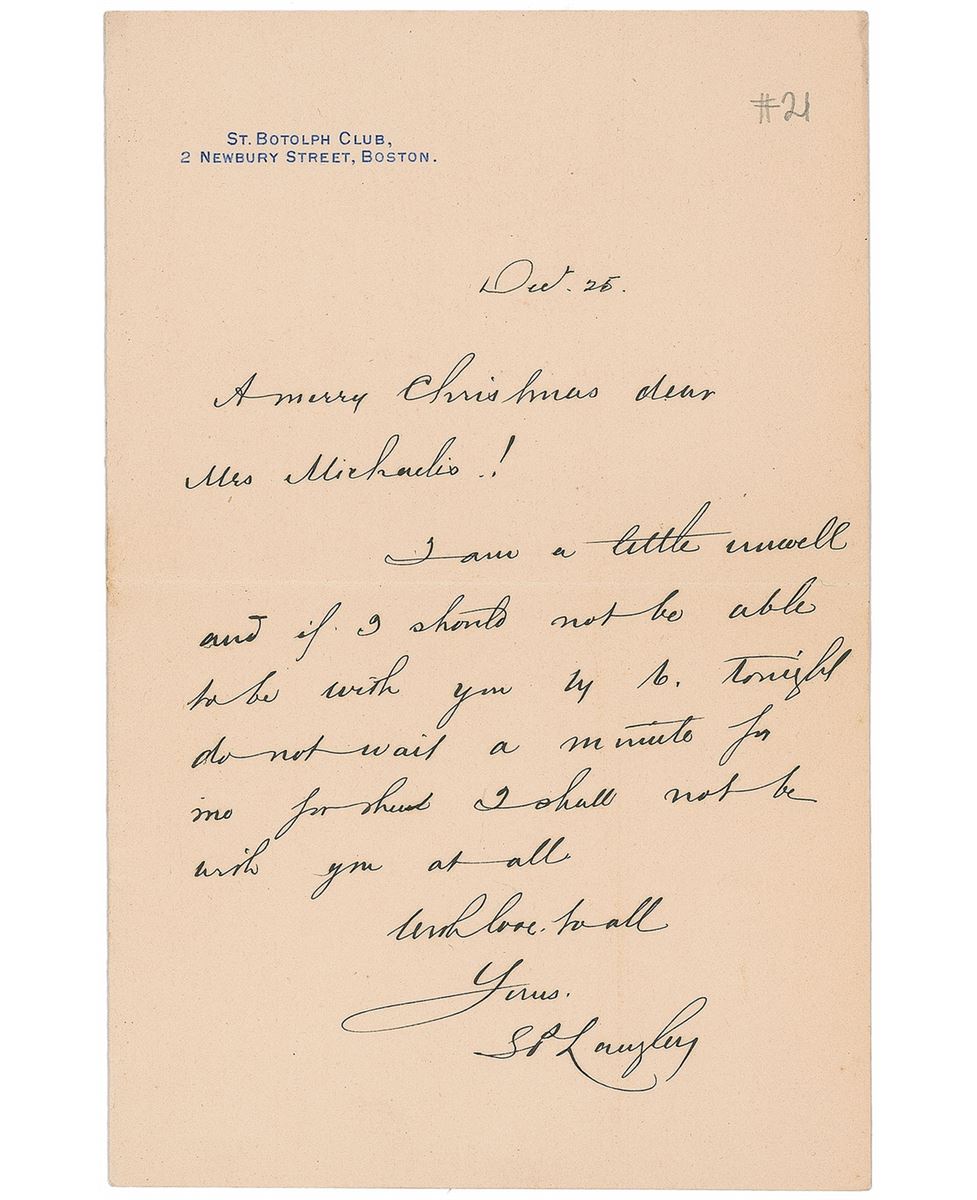 #21
ST. BOTOLPH CLUB,
2 NEWBURY STREET, BOSTON.
Dec. 25.
A merry Christmas dear
Mrs Michaelis !
I am a little unwell
and if I should not be able
to be with you by 6. tonight
do not wait a minute for
me for then I shall not be
with you at all
With love to all
Yours.
SP Langley